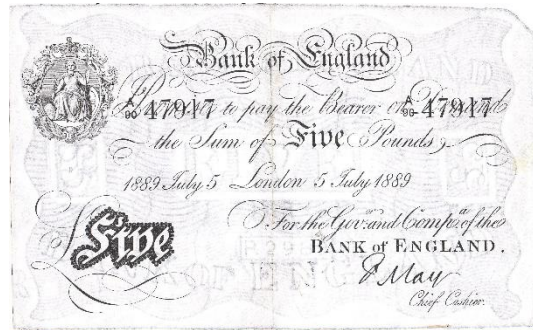 Bank of England
I Promise to pay the Bearer on Demand
A/90 47917 A/90 47917
the Sum of Five Pounds
1889 July 5 London 5 July 1889
For the Govr. and Compa. of the
£Five
BANK of ENGLAND.
F May
Chief Cashier.